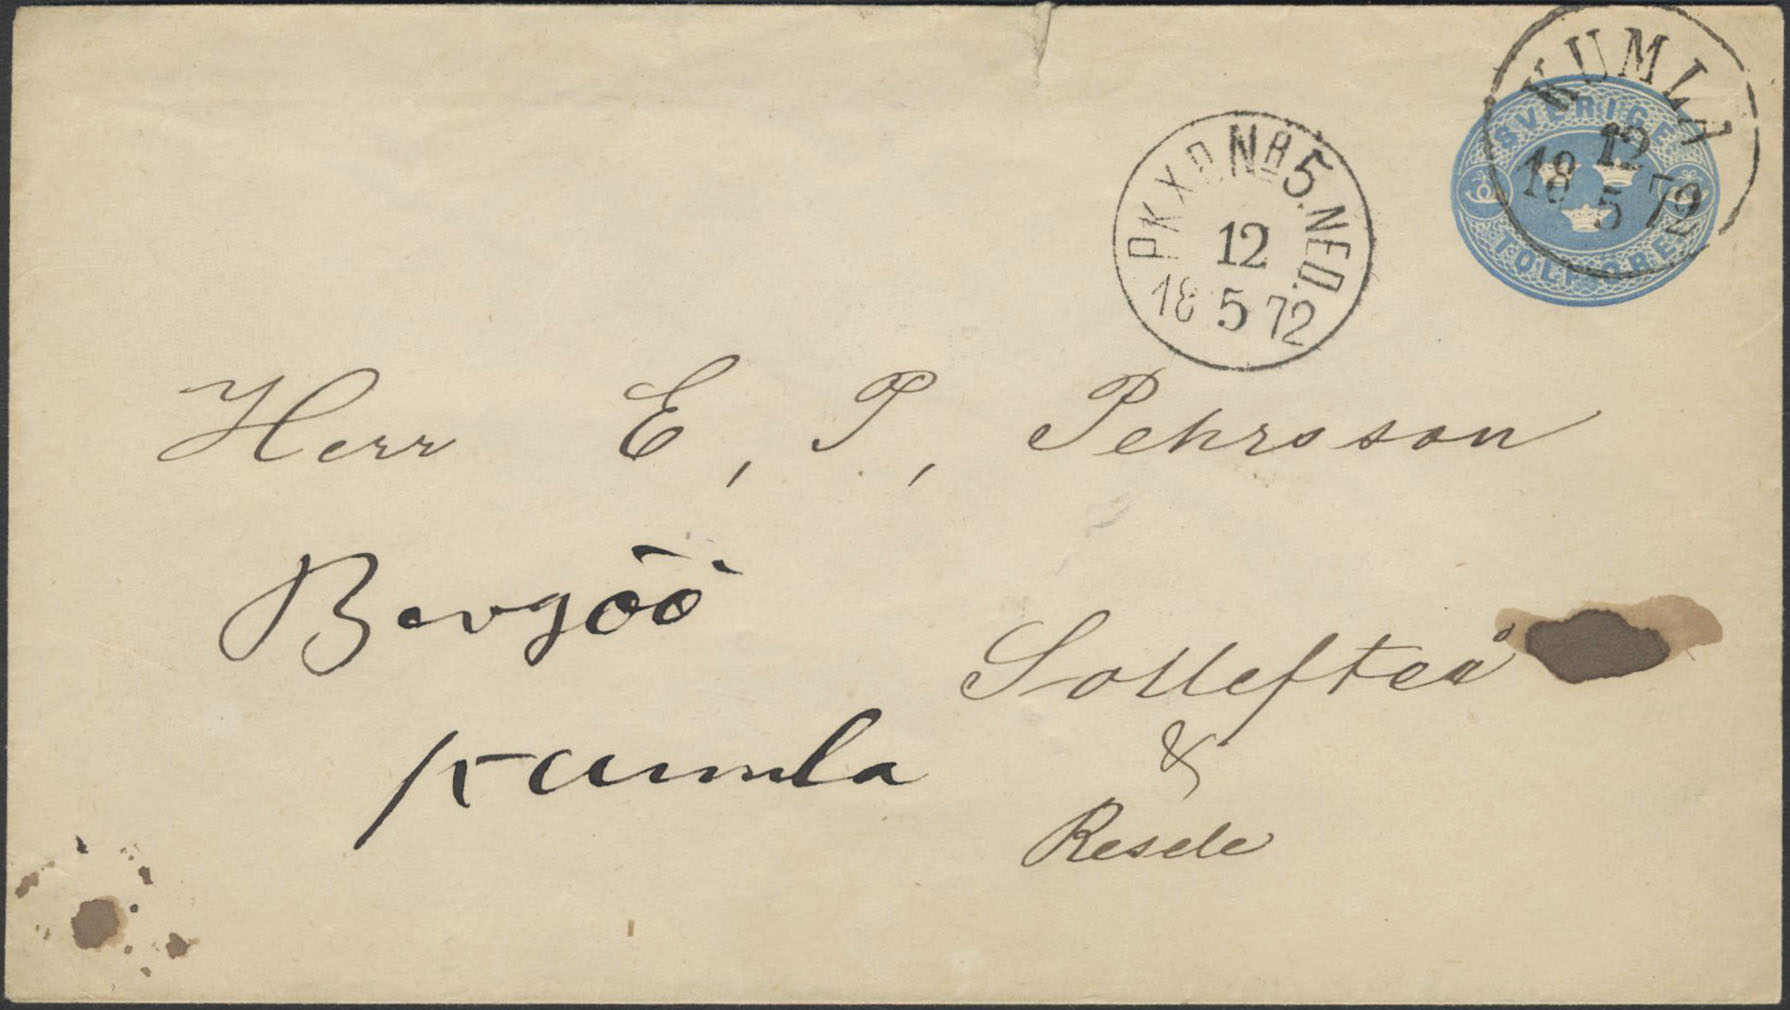 KUMLA
12
18 5 72
SVERIGE
TOLF ÖRE
PKXP. Nº 5. NED.
12
18 5 72
Herr E, P, Pehrsson
Bergöö
Kumla
Sollefteå
&
Resele